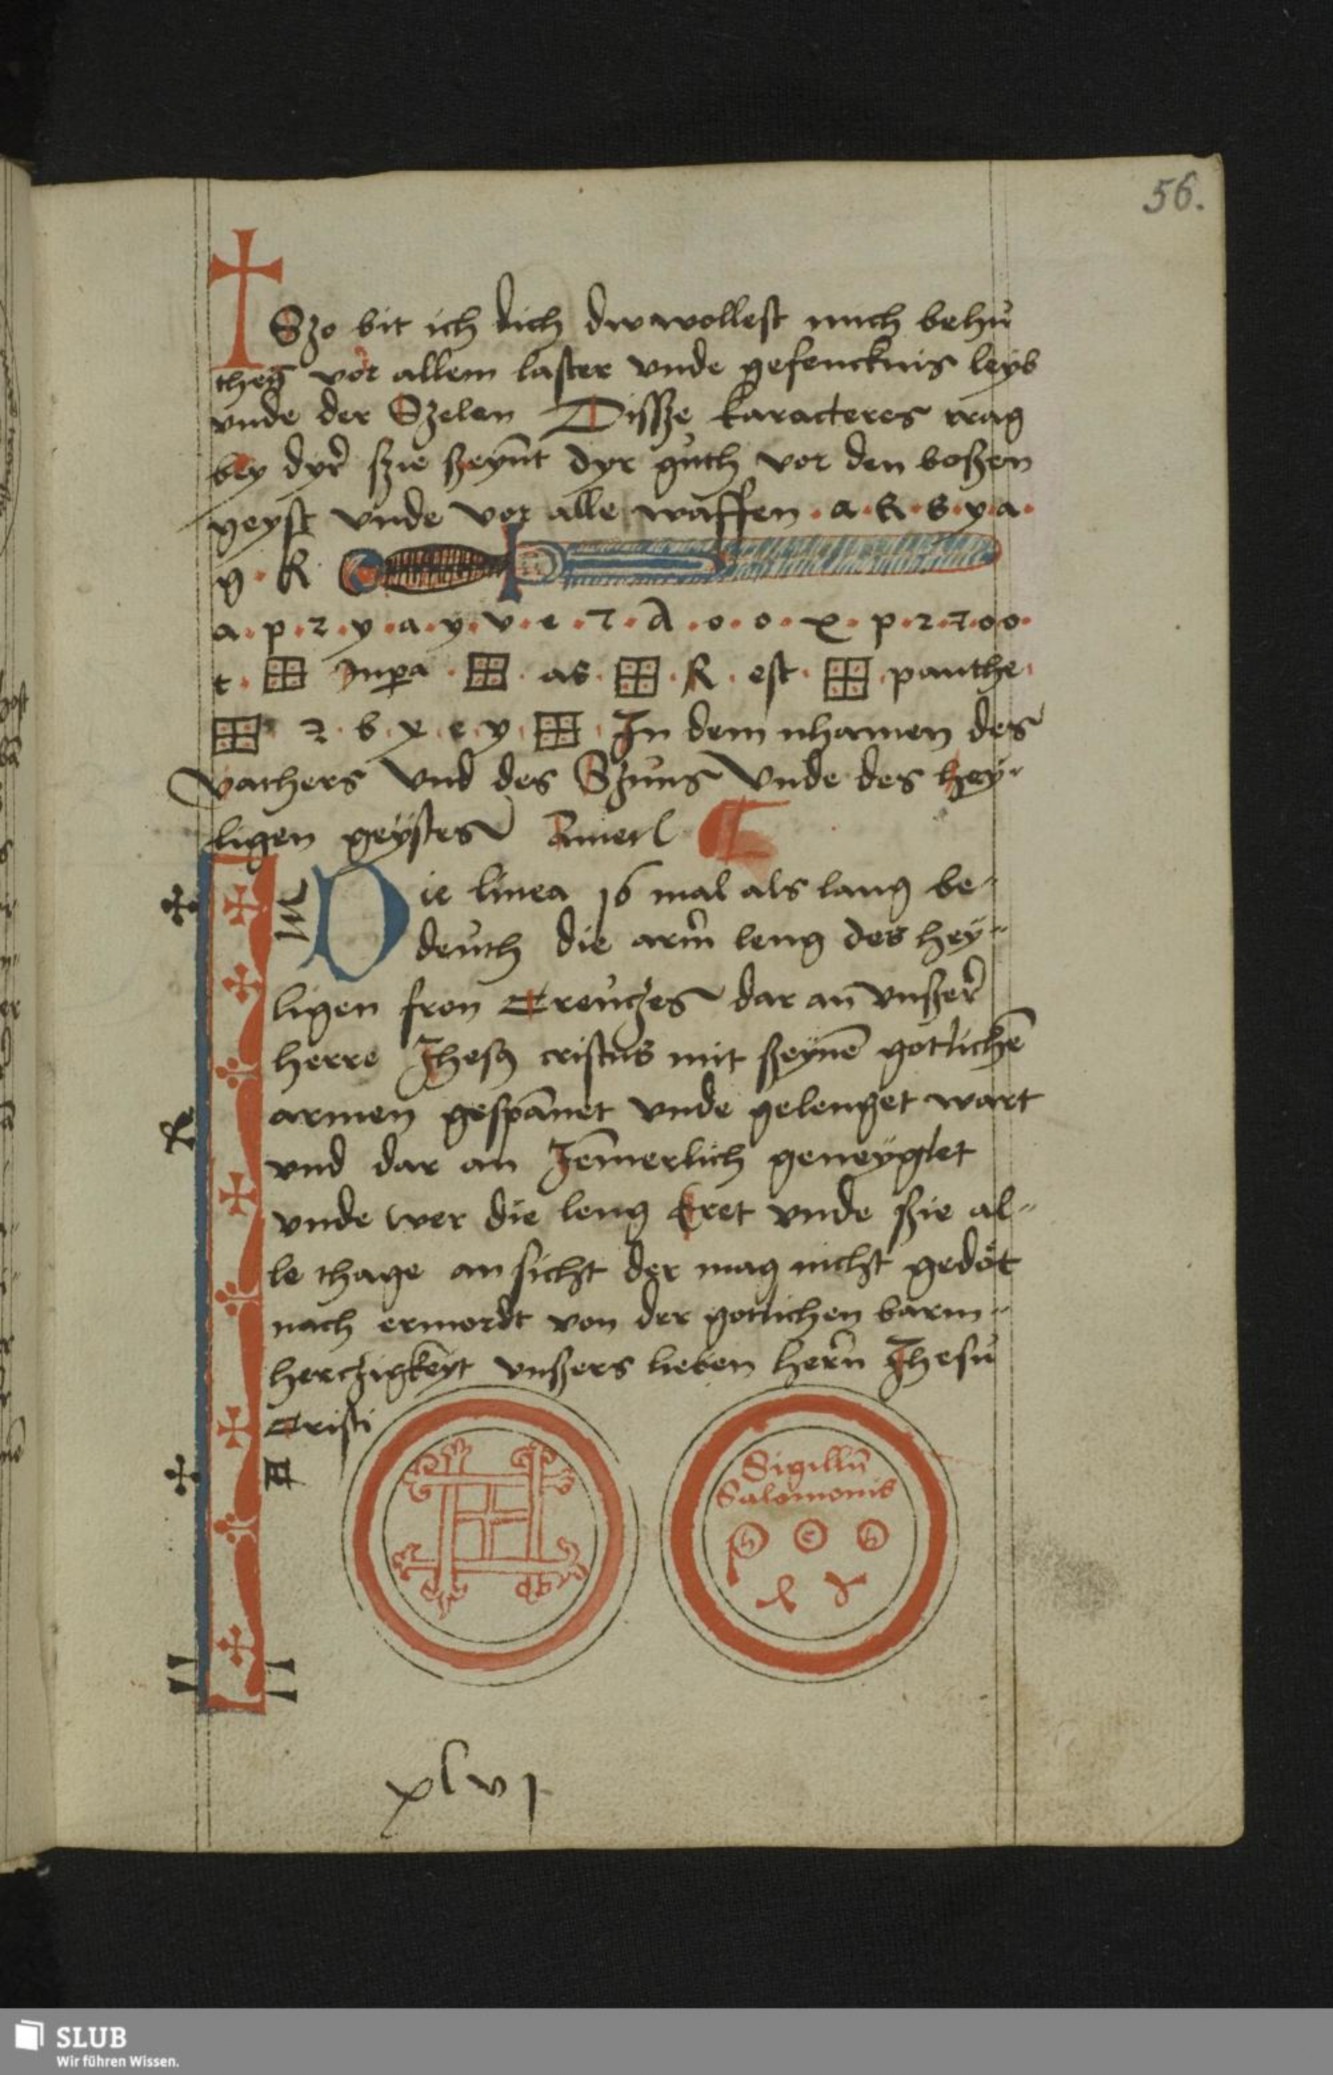 56.
Szo bit ich dich dw wollest mich behu
then vor allem laster vnde gefencknis leyb
vnde der Szelen Disse karacteres trag
bey dyr szie seynt dyr guth vor den boszen
geyst vnde vor alle waffen · a · k · b · y · a ·
g · k
a · p · z · y · a · y · v · e · 7 · A · o · o · x · p · z · 7 · o o ·
t · as · k · est · panthe
z · b · x · e · y · In dem nhamen des
vathers vnd des Szuns vnde des hey-
ligen geystes Amen
Die linea 16 mal als lang be-
deuth die arm leng des hey-
ligen fron Creuczes dar an vnszer
herre Jhesus cristus mit szeyne gotliche
armen gespanet vnde gelenget wart
vnd dar an Jemerlich geneyglet
vnde wer die leng Eret vnde szie al-
le thage an sicht der mag nicht gedot
nach ermordt von der gotlichen barm-
herczigkeyt vnszers lieben hern Jhesu
Cristi
Sigillu
Salomonis
xlvj
SLUB
Wir führen Wissen.